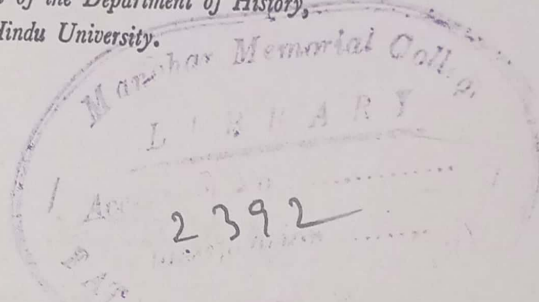 of the Department of History,
Hindu University.
Manohar Memorial College
LIBRARY
2392